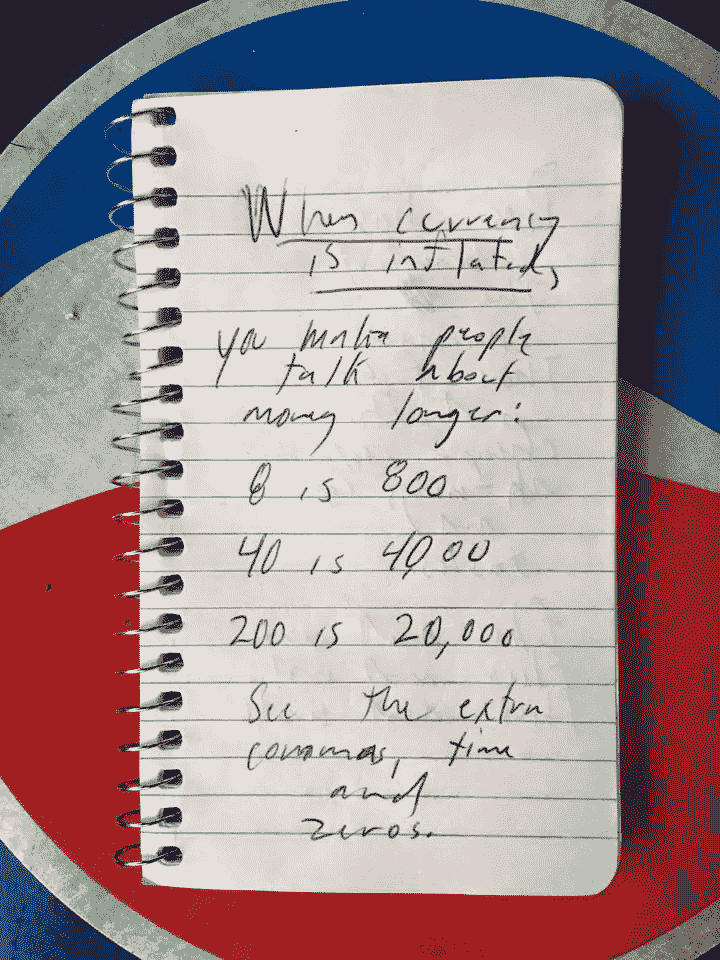 When currency
is inflated,
you make people
talk about
money longer:
8 is 800
40 is 4,000
200 is 20,000
See the extra
commas, time
and
zeros.